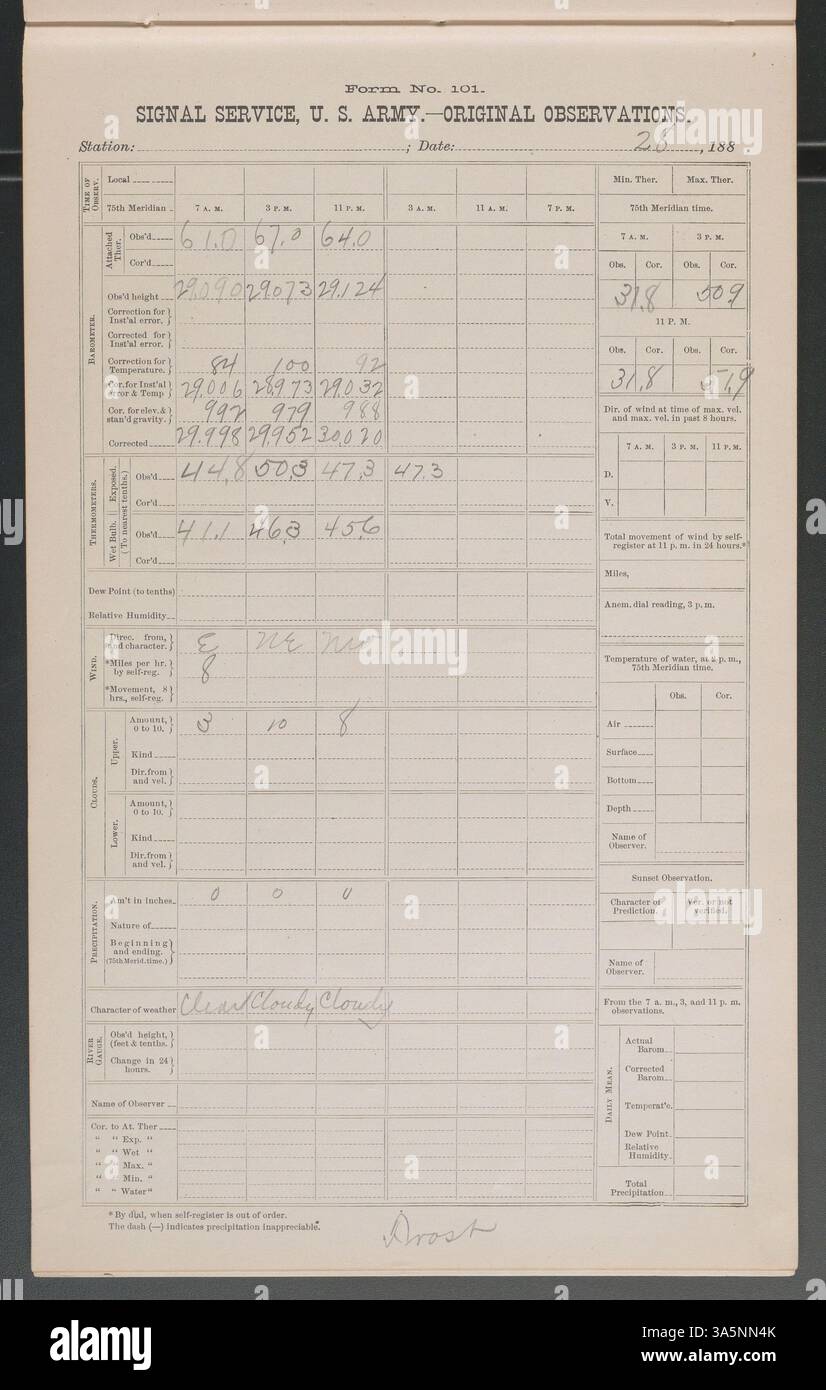 Form No. 101.
SIGNAL SERVICE, U. S. ARMY.—ORIGINAL OBSERVATIONS.
Station: ; Date: 28, 188
TIME OF OBSERV.
Local
75th Meridian 7 A. M. 3 P. M. 11 P. M. 3 A. M. 11 A. M. 7 P. M.
BAROMETER.
Attached Ther.
Obs'd 61.0 67.0 64.0
Cor'd
Obs'd height 29.090 29.073 29.124
Correction for Inst'al error.
Corrected for Inst'al error.
Correction for Temperature. 84 100 92
Cor. for Inst'al error & Temp 29.006 28.973 29.032
Cor. for elev. & stan'd gravity. 992 979 988
Corrected 29.998 29.952 30.020
THERMOMETERS.
(To nearest tenths.)
Exposed.
Obs'd 44.8 50.3 47.3 47.3
Cor'd
Wet Bulb.
Obs'd 41.1 46.3 45.6
Cor'd
Dew Point (to tenths)
Relative Humidity
WIND.
Direc. from, and character. E NE
*Miles per hr. by self-reg. 8
*Movement, 8 hrs., self-reg.
CLOUDS.
Upper.
Amount, 0 to 10. 3 10 8
Kind
Dir. from and vel.
Lower.
Amount, 0 to 10.
Kind
Dir. from and vel.
PRECIPITATION.
Am't in inches 0 0 0
Nature of
Beginning and ending. (75th Merid. time.)
Character of weather Clear Cloudy Cloudy
RIVER GAUGE.
Obs'd height, (feet & tenths.
Change in 24 hours.
Name of Observer
Cor. to At. Ther
" " Exp. "
" " Wet "
" " Max. "
" " Min. "
" " Water "
* By dial, when self-register is out of order.
The dash (—) indicates precipitation inappreciable.
Frost
Min. Ther. Max. Ther.
75th Meridian time.
7 A. M. 3 P. M.
Obs. Cor. Obs. Cor.
31.8 50.9
11 P. M.
Obs. Cor. Obs. Cor.
31.8 51.9
Dir. of wind at time of max. vel. and max. vel. in past 8 hours.
7 A. M. 3 P. M. 11 P. M.
D.
V.
Total movement of wind by self-register at 11 p. m. in 24 hours.*
Miles,
Anem. dial reading, 3 p. m.
Temperature of water, at 2 p. m., 75th Meridian time.
Obs. Cor.
Air
Surface
Bottom
Depth
Name of Observer.
Sunset Observation.
Character of Prediction. Ver. or not verified.
Name of Observer.
From the 7 a. m., 3, and 11 p. m. observations.
DAILY MEAN.
Actual Barom.
Corrected Barom.
Temperat'e.
Dew Point.
Relative Humidity.
Total Precipitation
alamy
Image ID: 3A5NN4K
www.alamy.com